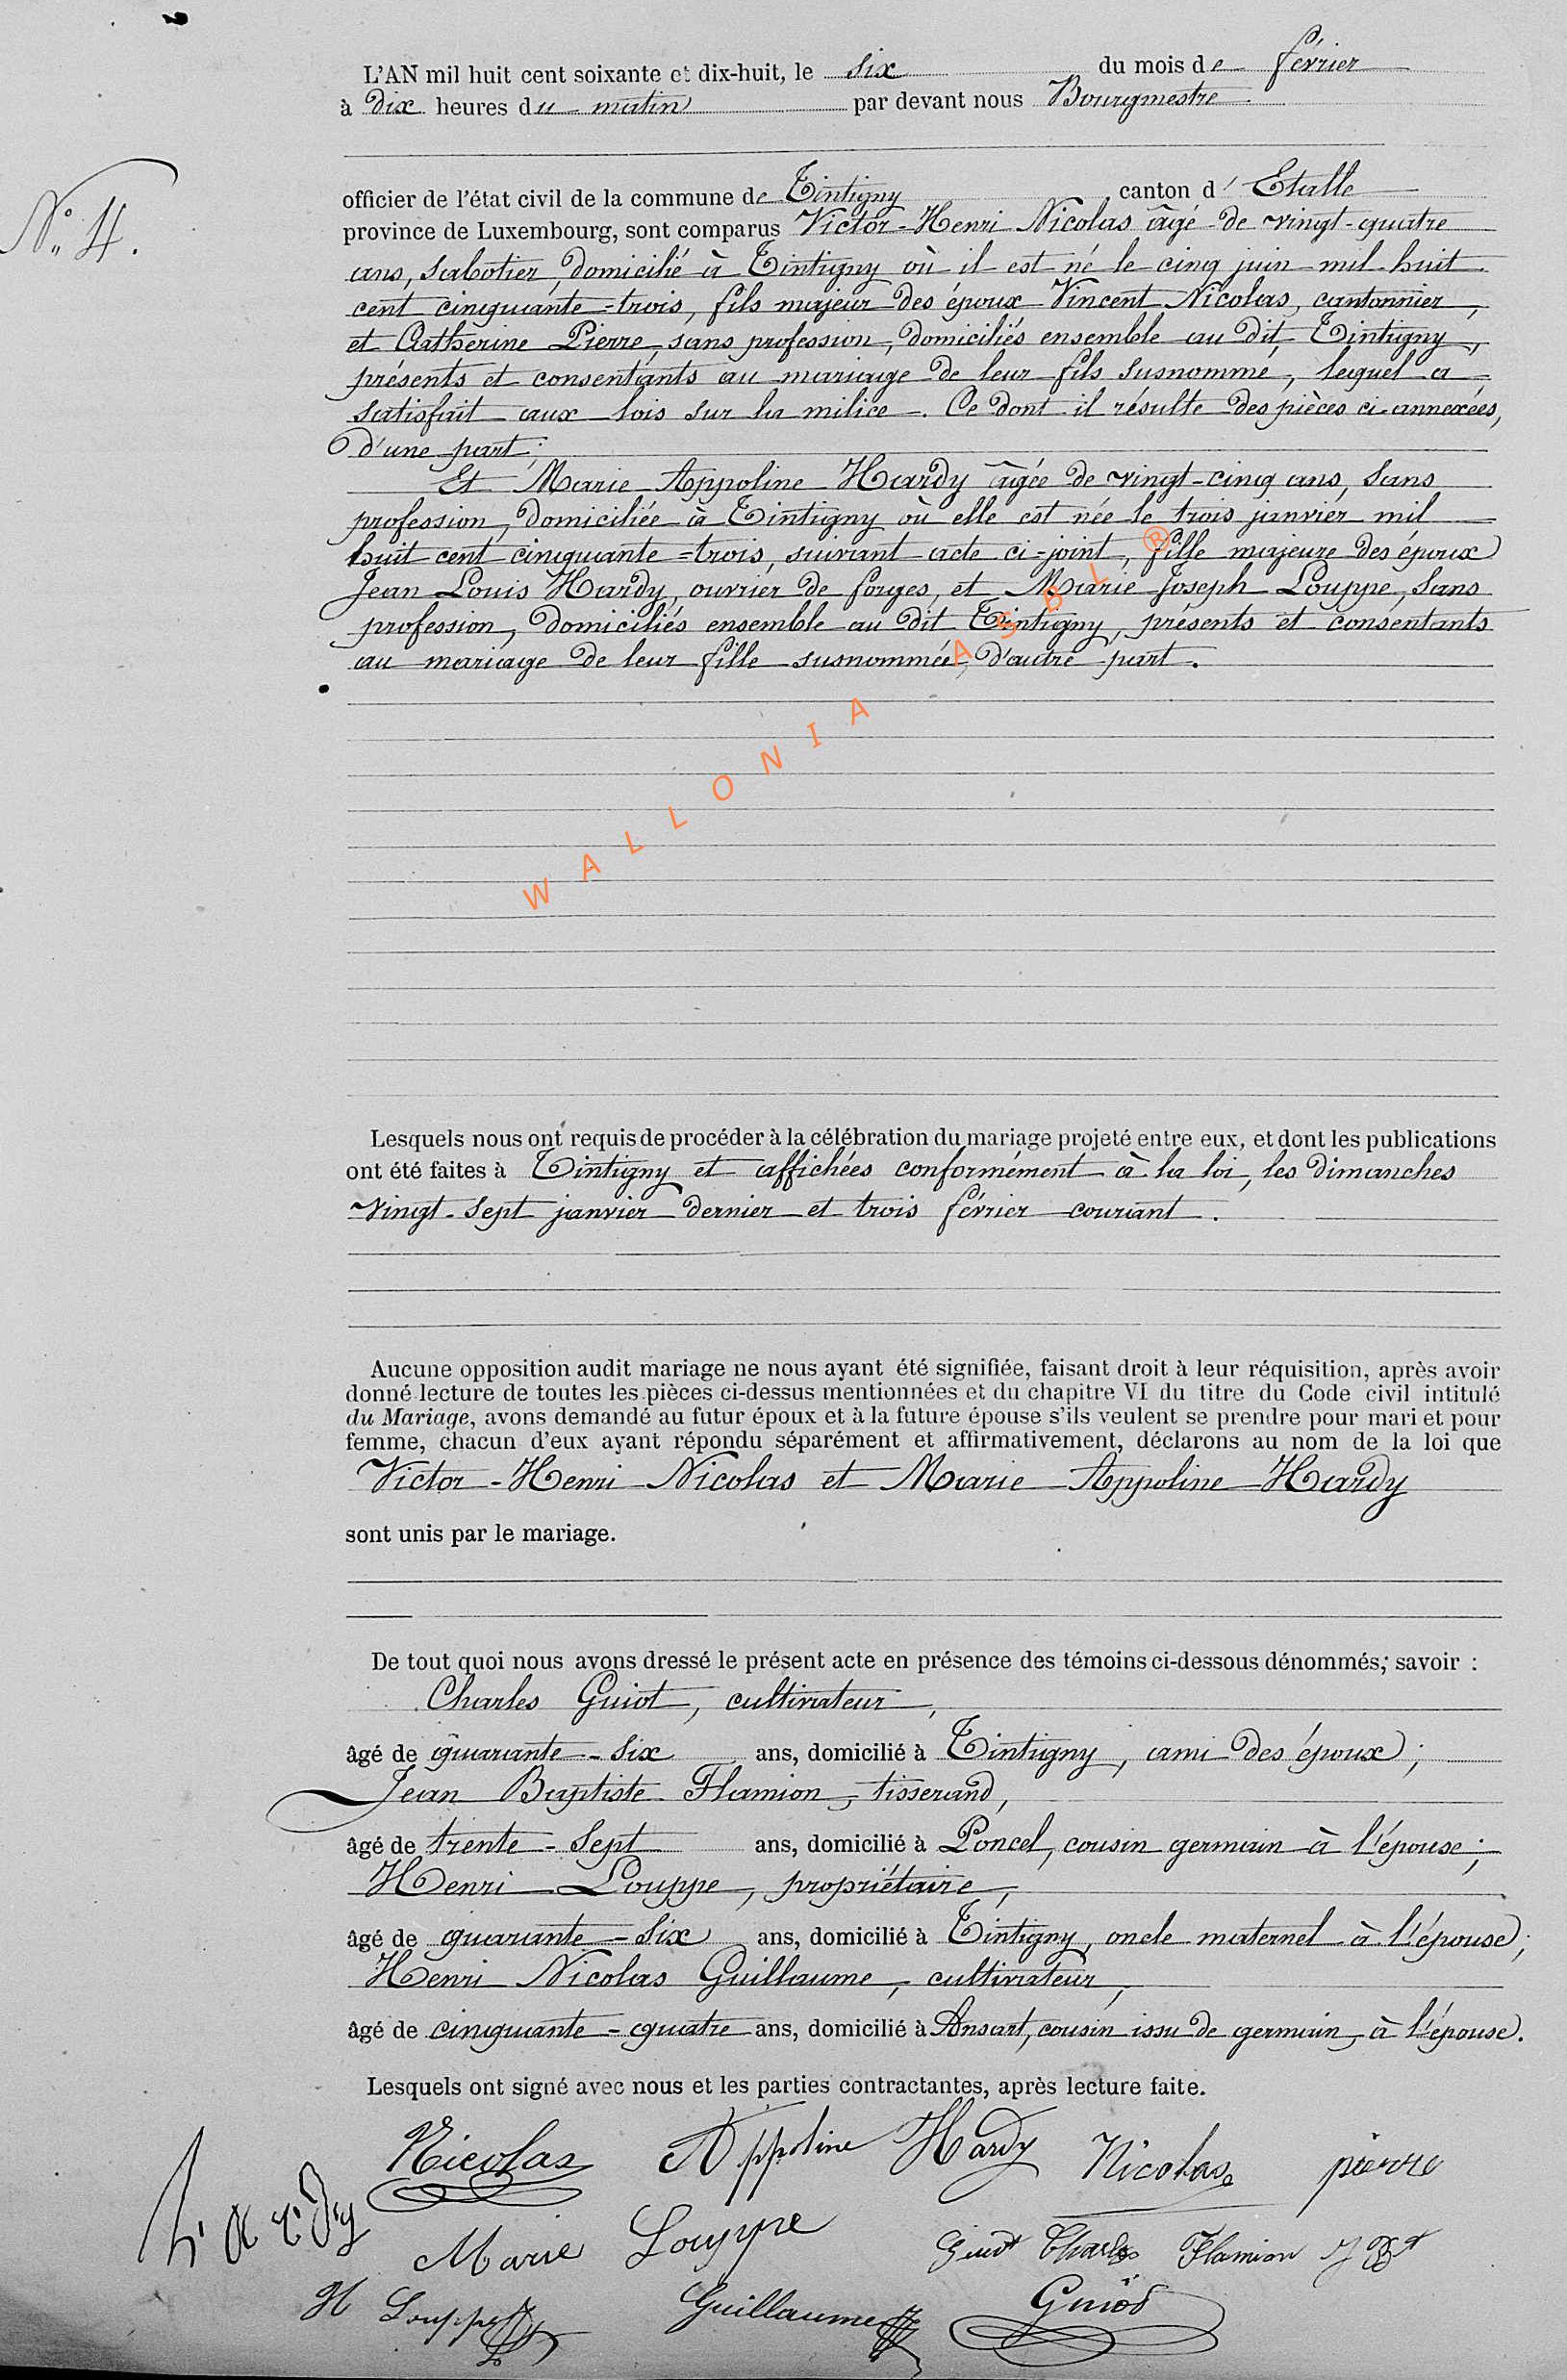 L'AN mil huit cent soixante et dix-huit, le six du mois de février
à dix heures du matin par devant nous Bourgmestre
officier de l'état civil de la commune de Tintigny canton d' Etalle
N° 4.
province de Luxembourg, sont comparus Victor-Henri Nicolas âgé de vingt-quatre
ans, sabotier, domicilié à Tintigny où il est né le cinq juin mil huit
cent cinquante-trois, fils majeur des époux Vincent Nicolas, cantonnier,
et Catherine Pierre, sans profession, domiciliés ensemble au dit Tintigny,
présents et consentants au mariage de leur fils susnommé, lequel a
satisfait aux lois sur la milice. Ce dont il résulte des pièces ci-annexées,
d'une part;
Et Marie Appoline Hardy âgée de vingt-cinq ans, sans
profession, domiciliée à Tintigny où elle est née le trois janvier mil
huit cent cinquante=trois, suivant acte ci-joint, fille majeure des époux
Jean Louis Hardy, ouvrier de forges, et Marie Joseph Louppe, sans
profession, domiciliés ensemble au dit Tintigny, présents et consentants
au mariage de leur fille susnommée, d'autre part.
WALLONIA ASBL ®
Lesquels nous ont requis de procéder à la célébration du mariage projeté entre eux, et dont les publications
ont été faites à Tintigny et affichées conformément à la loi, les dimanches
vingt-sept janvier dernier et trois février courant.
Aucune opposition audit mariage ne nous ayant été signifiée, faisant droit à leur réquisition, après avoir
donné lecture de toutes les pièces ci-dessus mentionnées et du chapitre VI du titre du Code civil intitulé
du Mariage, avons demandé au futur époux et à la future épouse s'ils veulent se prendre pour mari et pour
femme, chacun d'eux ayant répondu séparément et affirmativement, déclarons au nom de la loi que
Victor-Henri Nicolas et Marie Appoline Hardy
sont unis par le mariage.
De tout quoi nous avons dressé le présent acte en présence des témoins ci-dessous dénommés; savoir :
Charles Guiot, cultivateur,
âgé de quarante-six ans, domicilié à Tintigny, ami des époux;
Jean Baptiste Flamion, tisserand,
âgé de trente-sept ans, domicilié à Poncel, cousin germain à l'épouse;
Henri Louppe, propriétaire,
âgé de quarante-six ans, domicilié à Tintigny, oncle maternel à l'épouse;
Henri Nicolas Guillaume, cultivateur,
âgé de cinquante-quatre ans, domicilié à Ansart, cousin issu de germain, à l'épouse.
Lesquels ont signé avec nous et les parties contractantes, après lecture faite.
Nicolas Appoline Hardy Nicolas pierre
hardy Marie Louppe Guiot Charles Flamion J Bt
H Louppe Guillaume Guiot